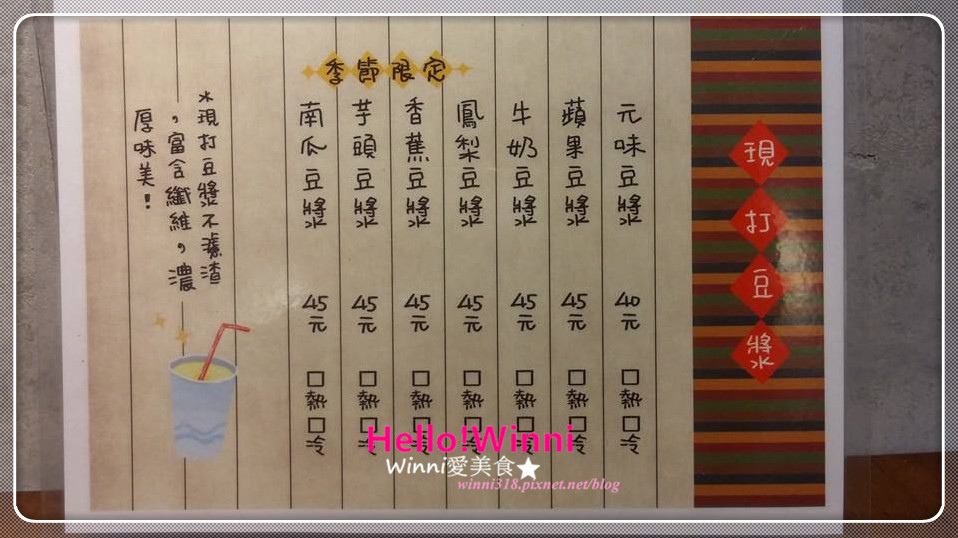 現打豆漿
元味豆漿 40元 □熱□冷
蘋果豆漿 45元 □熱□冷
牛奶豆漿 45元 □熱□冷
鳳梨豆漿 45元 □熱□冷
季節限定
香蕉豆漿 45元 □熱□冷
芋頭豆漿 45元 □熱□冷
南瓜豆漿 45元 □熱□冷
*現打豆漿不濾渣
，富含纖維，濃
厚味美！
Hello!Winni
Winni愛美食★
winni318.pixnet.net/blog